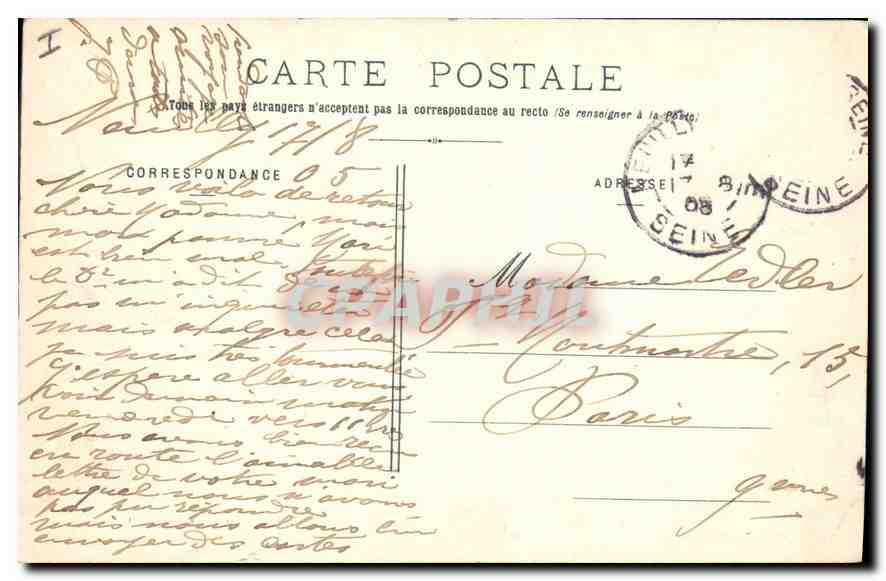 I
CARTE POSTALE
Tous les pays étrangers n'acceptent pas la correspondance au recto (Se renseigner à la Poste)
17/8
05
CORRESPONDANCE
ADRESSE
NEUILLY
17
8
08
SEINE
SEINE
Nous voilà de retour
chère Madame, mais
mon pauvre Mari
est bien mal
le Dr m'a dit de ne
pas m'inquiéter
mais malgré cela
je suis très tourmentée
J'espère aller vous
voir demain matin
vendredi vers 11 hres
Nous avons bien reçu
en route l'aimable
lettre de votre mari
auquel nous n'avons
pas pu répondre
mais nous allons lui
envoyer des cartes
Madame Tedler
Montmartre, 15,
Paris
CPAPHIL